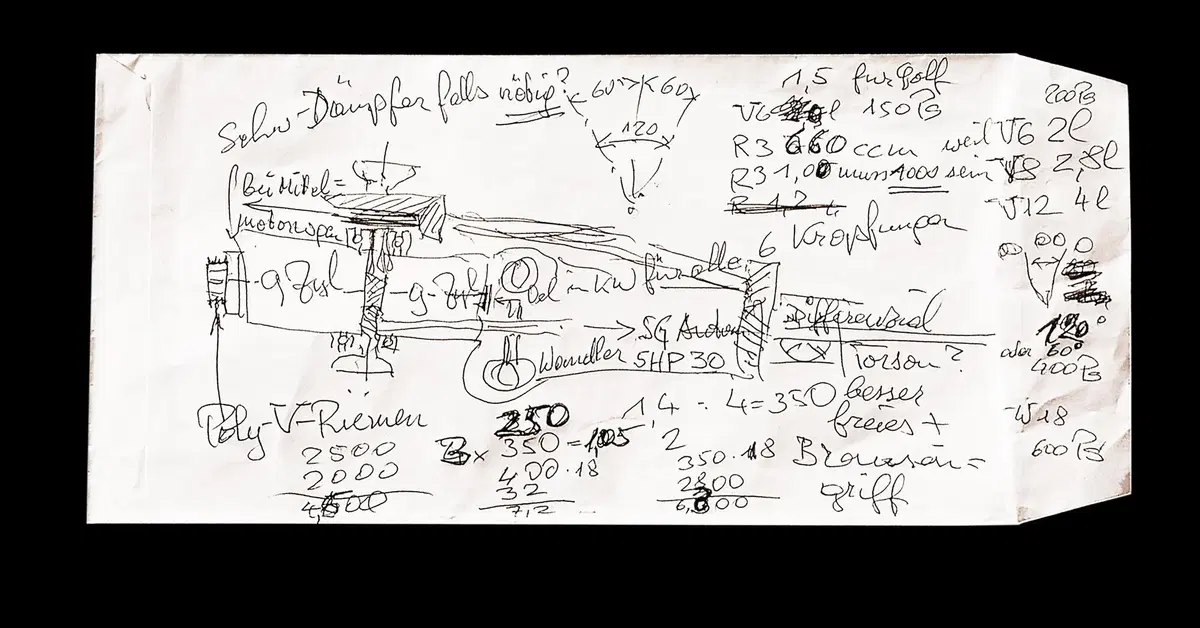 Schw-Dämpfer falls nötig?
60° 60
120
1,5 für Golf
V6 150 PS
R3 660 ccm weil
R3 1,00 muss 1000 sein
R 1,2
200 PS
V6 2l
V8 2,8l
V12 4l
bei Mittel=
motorwagen
6 Kröpfungen
9 Zyl
9-Zyl
Öl in KW für alle
→ SG
Wandler 5HP30
Differenzial
Torsen?
120°
oder 60°
400 PS
W18
600 PS
Poly-V-Riemen
2500
2000
4,500
350
3x 350 = 1,05
400·18
32
7,2
1,4 : 4 = 350 besser
freies +
2
350·18
2800
6,300
griff